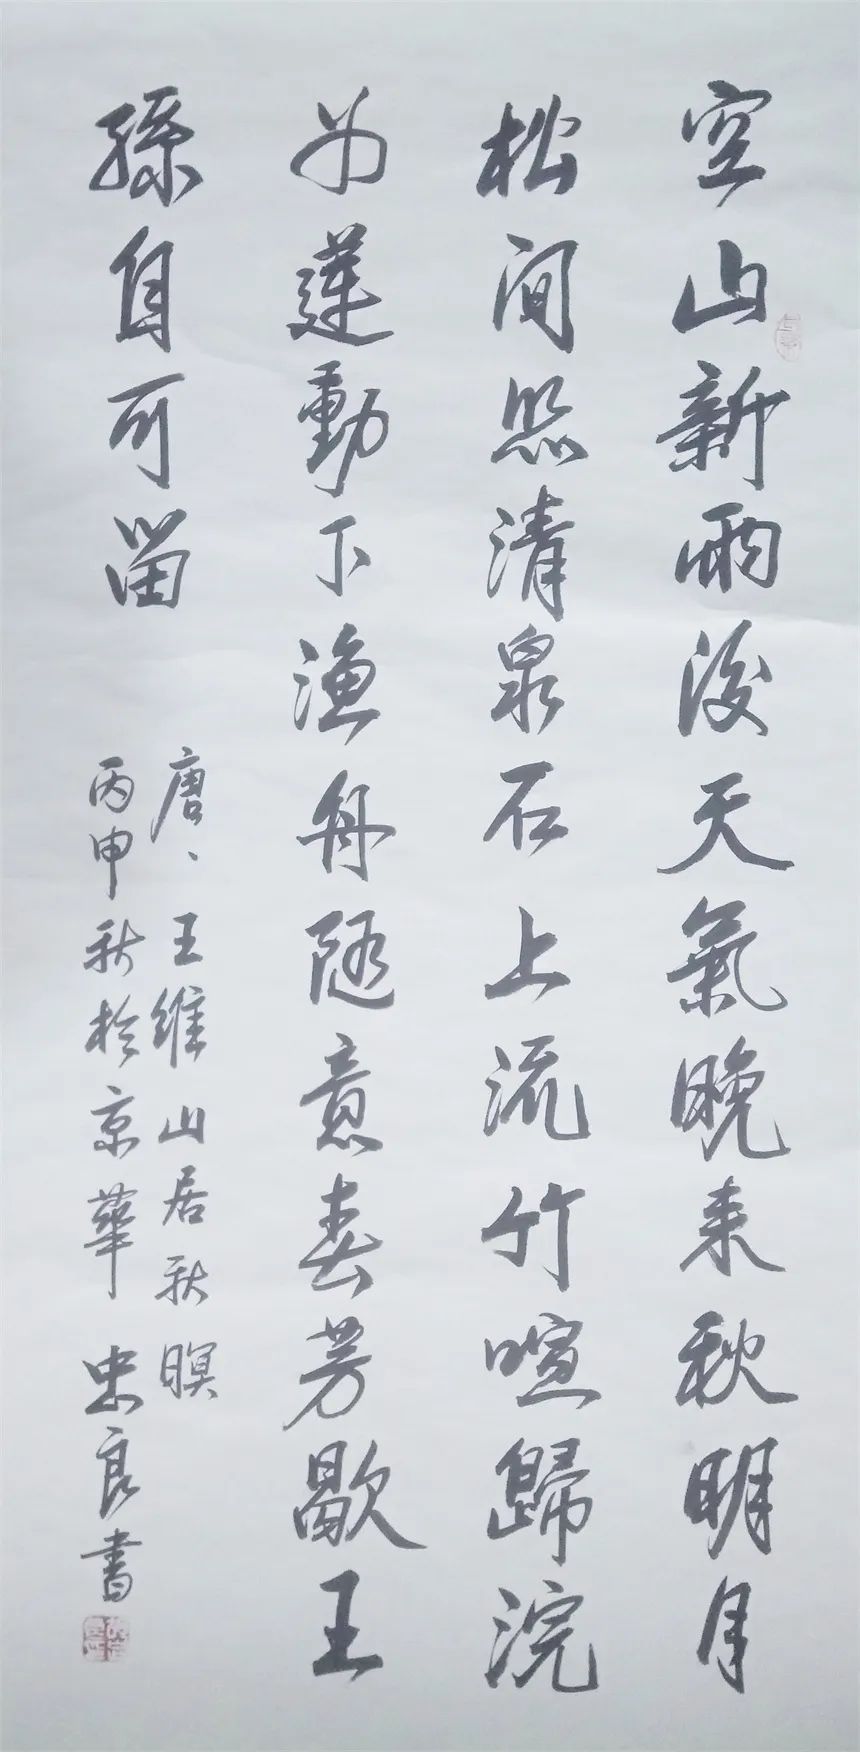 空山新雨後天氣晚来秋明月
松间照清泉石上流竹喧歸浣
女莲動下渔舟随意春芳歇王
孫自可留
唐、王维山居秋暝
丙申秋於京華 忠良書